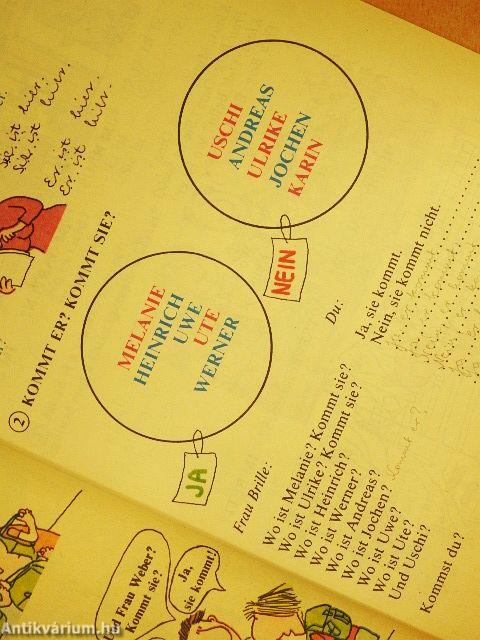 Sie ist hier.
Sie ist hier.
Er ist hier.
Er ist hier.
② KOMMT ER? KOMMT SIE?
MELANIE
HEINRICH
UWE
UTE
WERNER
JA
USCHI
ANDREAS
ULRIKE
JOCHEN
KARIN
NEIN
Frau Brille:
Wo ist Melanie? Kommt sie?
Wo ist Ulrike? Kommt sie?
Wo ist Heinrich?
Wo ist Werner?
Wo ist Andreas?
Wo ist Jochen?
Wo ist Uwe?
Wo ist Ute?
Und Uschi?
Kommst du?
Du:
Ja, sie kommt.
Nein, sie kommt nicht.
Frau Weber?
Kommt sie?
Ja,
sie kommt!
Antikvárium.hu